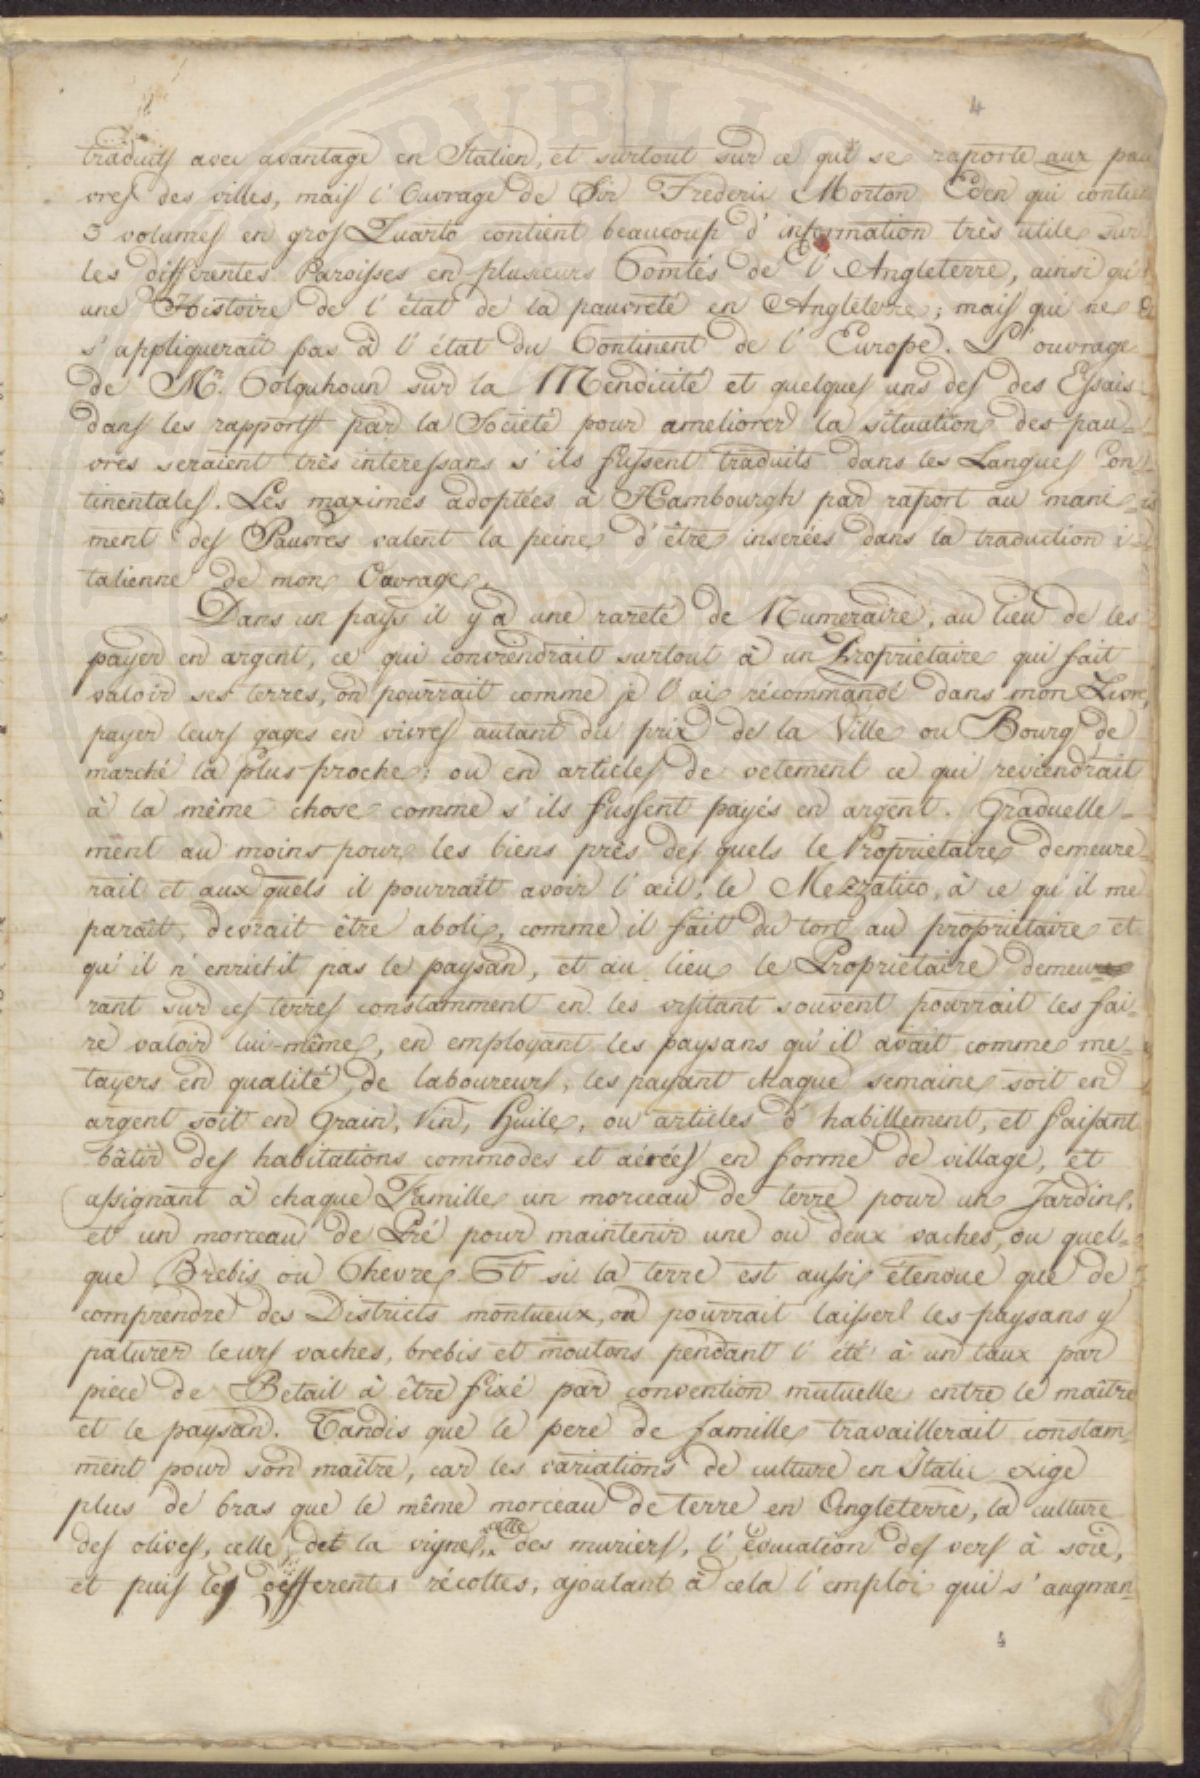 4
traduits avec avantage en Italien, et surtout sur ce qui se raporte aux pau
vres des villes, mais l'Ouvrage de Sir Frederic Morton Eden qui contient
3 volumes en gros Quarto contient beaucoup d'information très utile sur
les differentes Paroisses en plusieurs Comtés de l'Angleterre, ainsi qu'
une Histoire de l'état de la pauvreté en Angleterre; mais qui ne
s'appliquerait pas à l'état du Continent de l'Europe. L'ouvrage
de Mr. Colquhoun sur la Mendicité et quelques uns des des Essais
dans les rapports par la Societé pour ameliorer la situation des pau-
vres seraient très interessans s'ils fussent traduits dans les Langues Con
tinentales. Les maximes adoptées à Hambourgh par raport au mani-
ment des Pauvres valent la peine d'être inserées dans la traduction i-
talienne de mon Ouvrage.
Dans un pays il y a une rareté de Numeraire, au lieu de les
payer en argent, ce qui conviendrait surtout à un Proprietaire qui fait
valoir ses terres, on pourrait comme je l'ai récommandé dans mon Livre,
payer leurs gages en vivres autant du prix de la Ville ou Bourg de
marché la plus proche; ou en articles de vetement ce qui reviendrait
à la même chose comme s'ils fussent payés en argent. Graduelle-
ment au moins pour les biens près des quels le Proprietaire demeure-
rait et aux quels il pourrait avoir l'œil, le Mezzatico, à ce qu'il me
paraît, devrait être aboli, comme il fait du tort au propriétaire et
qu'il n'enrichit pas le paysan, et au lieu le Proprietaire demeu
rant sur ces terres constamment en les visitant souvent pourrait les fai-
re valoir lui-même, en employant les paysans qu'il avait comme me-
tayers en qualité de laboureurs, les payant chaque semaine soit en
argent soit en Grain, Vin, Huile, ou articles d'habillement, et faisant
bâtir des habitations commodes et aérées en forme de village, et
assignant à chaque Famille un morceau de terre pour un Jardin,
et un morceau de Pré pour maintenir une ou deux vaches, ou quel-
que Brebis ou Chevre. Et si la terre est aussi étendue que de
comprendre des Districts montueux, on pourrait laisser les paysans y
paturer leurs vaches, brebis et moutons pendant l'été à un taux par
piece de Betail à être fixé par convention mutuelle entre le maître
et le paysan. Tandis que le pere de famille travaillerait constam-
ment pour son maître, car les variations de culture en Italie exige
plus de bras que le même morceau de terre en Angleterre, la culture
des olives, celle de la vigne, celle des muriers, l'Education des vers à soie,
et puis les differentes récoltes, ajoutant à cela l'emploi qui s'augmen-
4